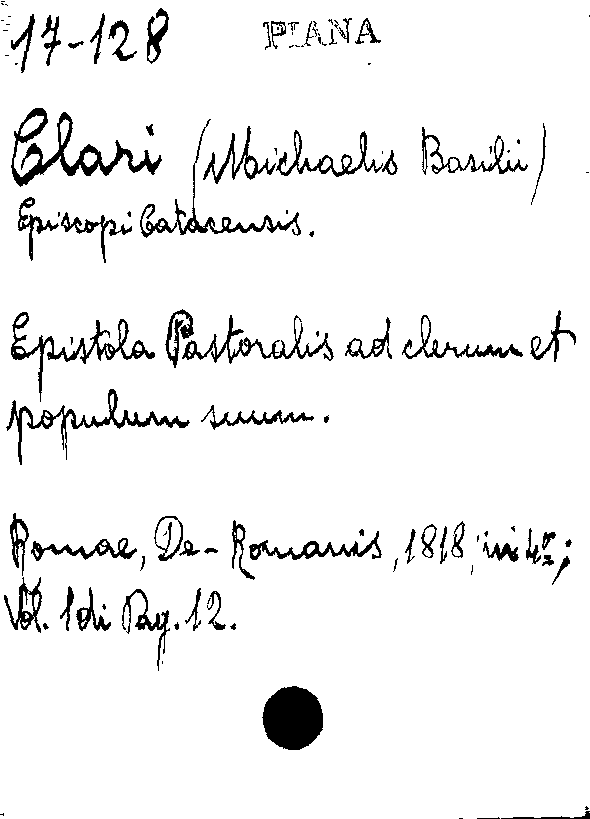 17-128 PIANA
Clari (Michaelis Basilii)
Episcopi Catacensis.
Epistola Pastoralis ad clerum et
populum suum.
Romae, De-Romanis, 1818, in 4º;
Vol. 1 di Pag. 12.